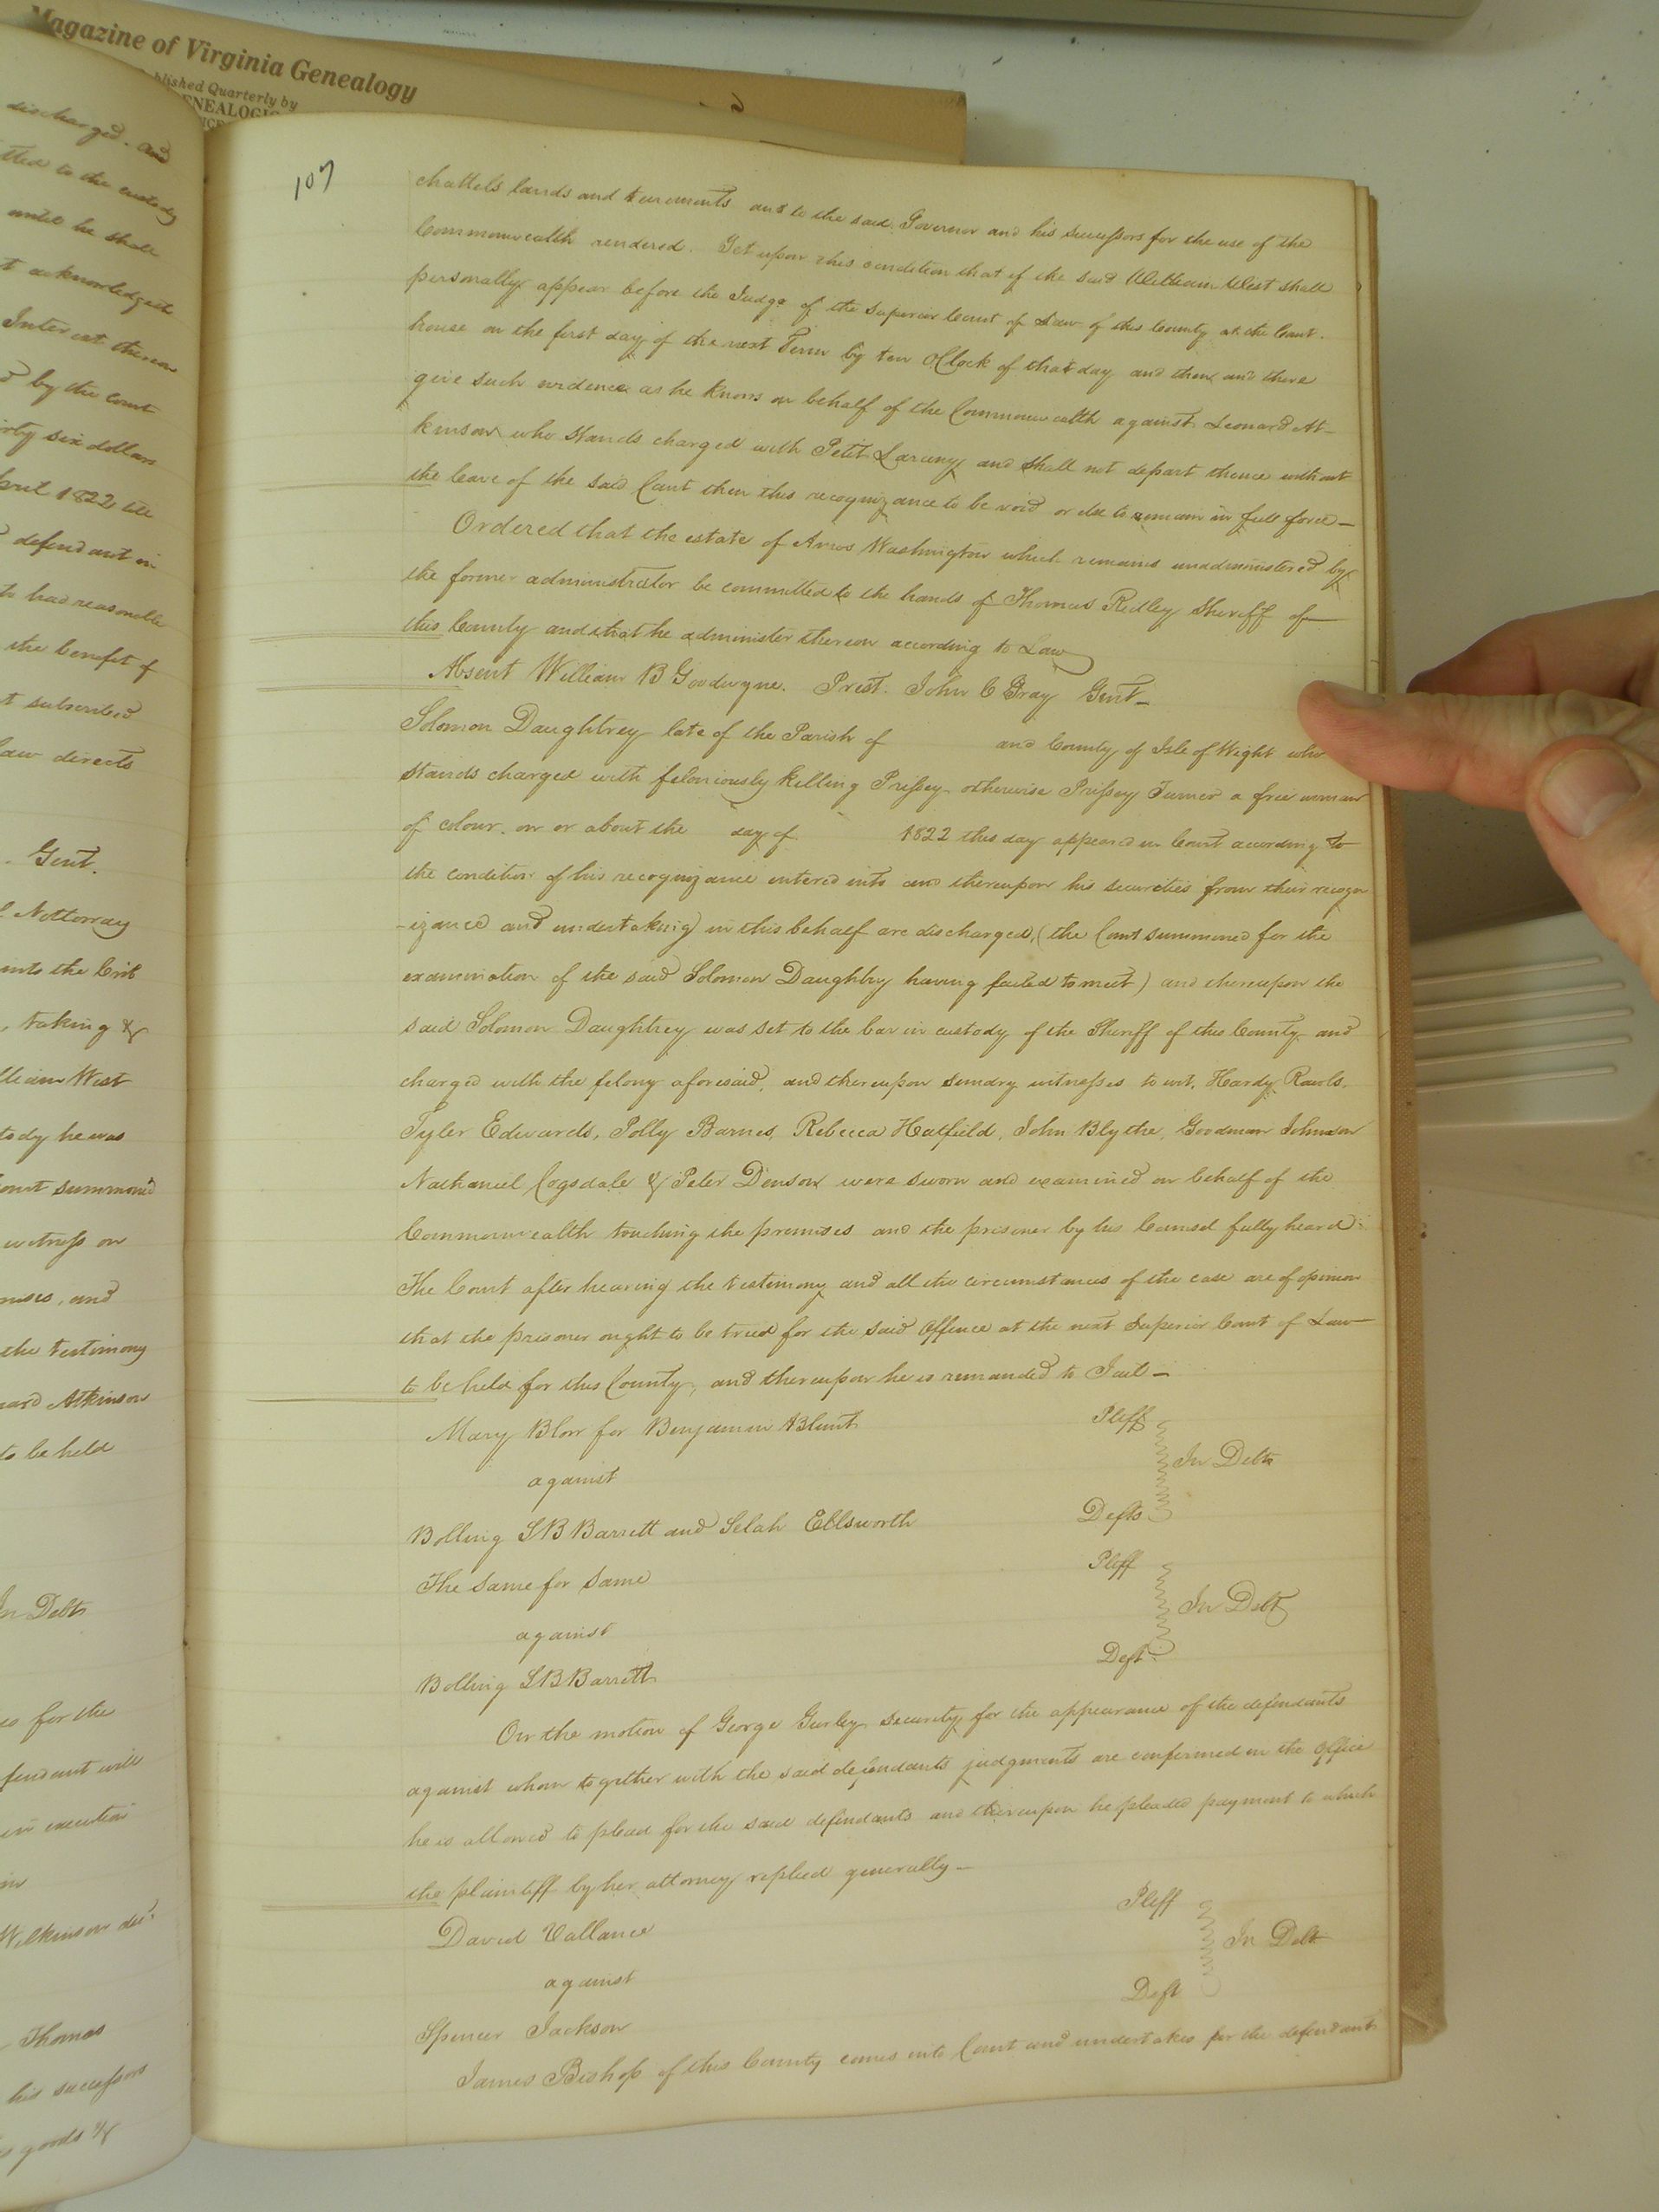 Magazine of Virginia Genealogy
blished Quarterly by
ENEALOGIC
discharged. and
tted to the custody
until he shall
t acknowledged
Interest thereon
d by the court
irty six dollars
1822 till
defendant in
to had reasonable
the benefit of
t subscribed
law directs
Gent.
Nottoway
into the Crib
, taking &
lliam West
tody he was
ourt summoned
witness on
mises, and
the testimony
nard Atkinson
to be held
In Debt
for the
fendant will
in execution
Wilkinson
Thomas
his successors
goods &
107
chattels lands and tenements and to the said Governor and his successors for the use of the
Commonwealth rendered. Yet upon this condition that if the said William West shall
personally appear before the Judge of the Superior Court of Law of this County at the Court
house on the first day of the next Term by ten OClock of that day and then and there
give such evidence as he knows on behalf of the Commonwealth against Leonard At-
kinson who stands charged with Petit Larceny and shall not depart thence without
the leave of the said Court then this recognizance to be void or else to remain in full force—
Ordered that the estate of Amos Washington which remains unadministered by
the former administrator be committed to the hands of Thomas Ridley Sheriff of
this County and that he administer thereon according to Law
Absent William B Goodwyne. Prest. John C Gray Gent—
Solomon Daughtrey late of the Parish of and County of Isle of Wight who
stands charged with feloniously killing Prissey otherwise Prissey Turner a free woman
of colour. on or about the day of 1822 this day appeared in Court according to
the condition of his recognizance entered into and thereupon his securities from their recogn
-izance and undertaking in this behalf are discharged, (the Court summoned for the
examination of the said Solomon Daughtry having failed to meet) and thereupon the
said Solomon Daughtrey was set to the bar in custody of the Sheriff of this County and
charged with the felony aforesaid, and thereupon sundry witnesses to wit, Hardy Rawls,
Tyler Edwards, Polly Barnes, Rebecca Hatfield, John Blythe, Goodman Johnson
Nathaniel Cogsdale & Peter Denson were sworn and examined on behalf of the
Commonwealth touching the premises and the prisoner by his Counsel fully heard
The Court after hearing the testimony and all the circumstances of the case are of opinion
that the prisoner ought to be tried for the said Offence at the next Superior Court of Law—
to be held for this County, and thereupon he is remanded to Jail—
Mary Blow for Benjamin Blunt Pltff
against In Debt
Bolling S B Barrett and Selah Ellsworth Defts
The same for same Pltff
against In Debt
Bolling S B Barrett Deft
On the motion of George Gurley security for the appearance of the defendants
against whom together with the said defendants judgments are confirmed in the Office
he is allowed to plead for the said defendants and thereupon he pleaded payment to which
the plaintiff by her attorney replied generally—
David Vallance Pltff
against In Debt
Spencer Jackson Deft
James Bishop of this County comes into Court and undertakes for the defendant